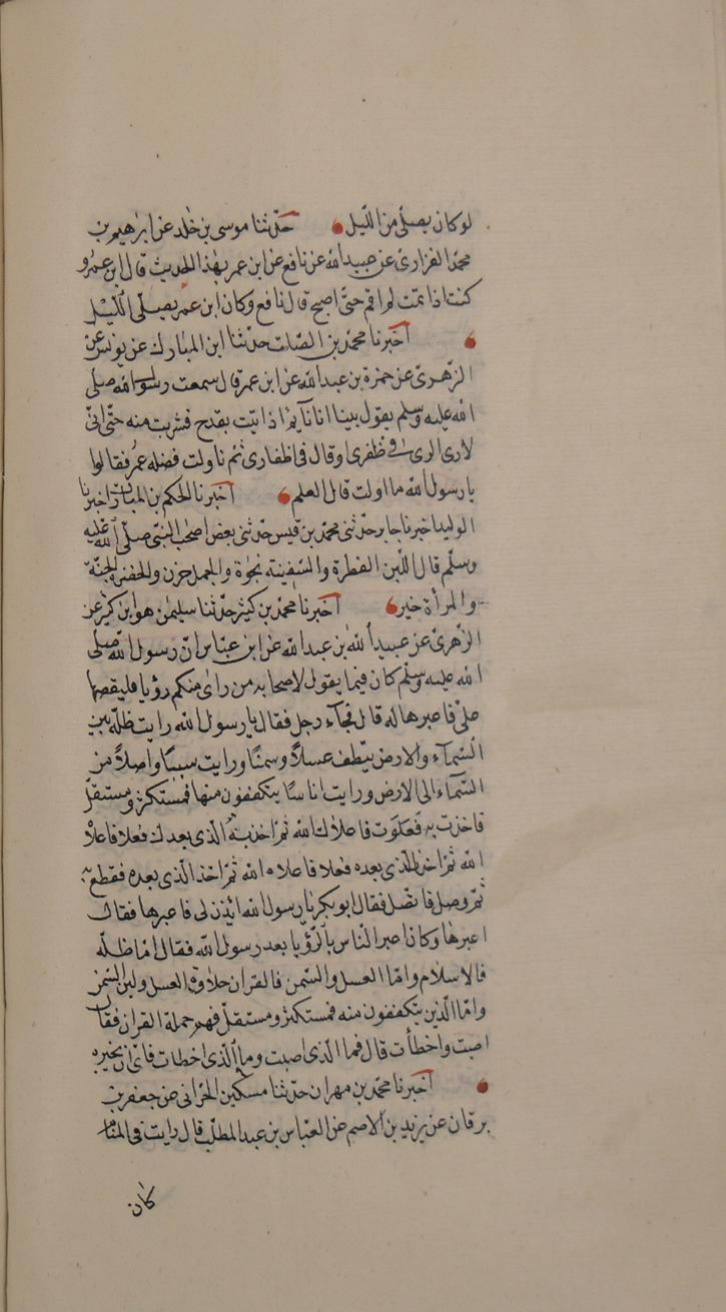 لو كان يصلّي من اللّيل حدّثنا موسى بن خٰلد عن ابرٰهيم بن
محمّد الفزارىّ عن عبيد الله عن نافع عن ابن عمر بهٰذا الحديث قال ابن عمر و
كنت اذا نمت لم اقم حتّى اصبح قال نافع وكان ابن عمر يصلّى اللّيل
اخبرنا محمّد بن الصّلت حدّثنا ابن المبٰارك عن يونس عن
الزّهرىّ عن حمزة بن عبد الله عن ابن عمر قال سمعت رسول الله صلى
الله عليه وسلّم يقول بينا انا نآيم اذا تيت بقدح فشربت منه حتّى انّى
لارى الرىّ فى ظفرى او قال فى اظفارى ثم ناولت فضله عمر فقالوا
يا رسول الله ما اولت قال العلم اخبرنا الحكم بن المبٰارك اخبرنا
الوليد اخبرنا جابر حدّثنى محمّد بن قيس حدّثنى بعض اصحٰاب النّبىّ صلّى الله عليه
وسلّم قال اللّبن الفطرة والسّفينة نجٰوة والجمل حزن والخضرة الجنّة
والمرأة خير اخبرنا محمّد بن كثير حدّثنا سليمٰن هو ابن كثير عن
الزّهرىّ عن عبيد الله بن عبد الله عن ابن عبّاس انّ رسول الله صلى
الله عليه وسلّم كان فيما يقول لاصحابه من راى منكم رؤيا فليقصها
علىّ فاعبرها له قال فجآء رجل فقال يا رسول الله رايت ظلّة بين
السّمآء والارض ينطف عسلاً وسمنًا ورايت سببًا واصلاً من
السّمآء الى الارض ورايت اناسًا يتكففون منها فمستكثر ومستقلّ
فاخذت به فعلوت فاعلاك الله ثمّ اخذ به الّذى بعدك فعلا فاعلاه
الله ثمّ اخذ الّذى بعده فعلا فاعلاه الله ثمّ اخذ الّذى بعده فقطع به
ثمّ وصل فاتّصل فقال ابو بكر يا رسول الله ايذن لى فاعبرها فقال
اعبرها وكان اعبر النّاس بالرّؤيا بعد رسول الله فقال امّا ظلّه
فالاسلام وامّا العسل والسّمن فالقران حلاوة العسل ولين السّمن
وامّا الّذين يتكففون منه فمستكثر ومستقلّ فهم حملة القران فقال
اصبت واخطأت قال فما الّذى اصبت وما الّذى اخطات فابى ان يخبره
اخبرنا محمّد بن مهران حدّثنا مسكين الحرّانى عن جعفر بن
برقان عن يزيد بن الاصم عن العبّاس بن عبد المطلب قال رايت فى المنام
كان